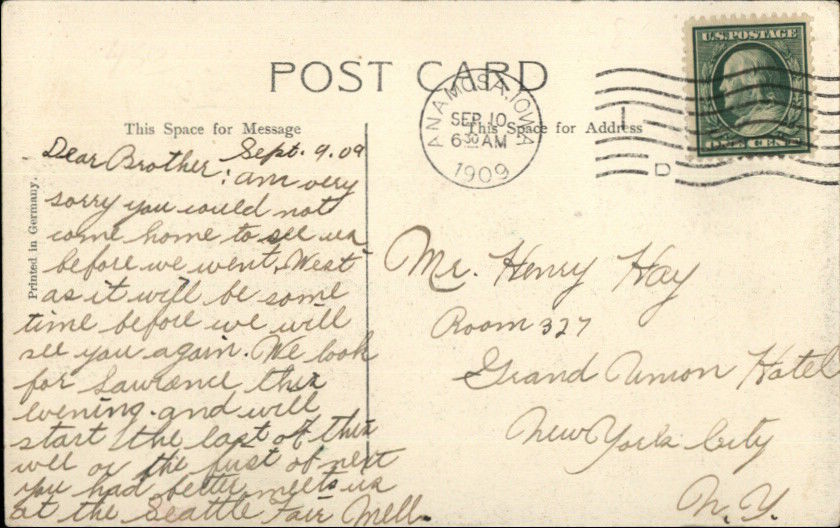 POST CARD
This Space for Message
This Space for Address
U.S. POSTAGE
ONE CENT
ANAMOSA, IOWA
SEP 10
6 30 AM
1909
Printed in Germany.
Sept. 9. 09
Dear Brother; am very
sorry you could not
come home to see us
before we went West
as it will be some
time before we will
see you again. We look
for Lawrence this
evening. and will
start the last of this
wee or the first of next
you had better meet us
at the Seattle Fair Mell.
Mr. Henry Hay
Room 327
Grand Union Hotel
New York City
N.Y.